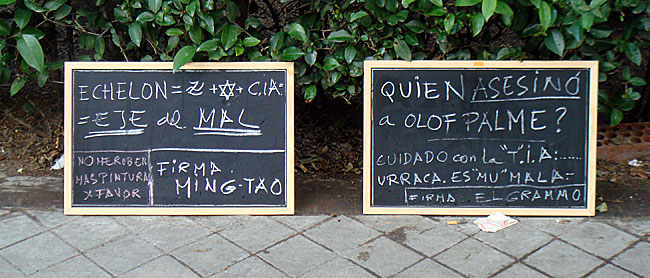 ECHELON = Z + ✡ + C.I.A. =
= EJE del MAL
NO ME ROBEN
MAS PINTURA
X FAVOR
FIRMA
MING-TAO
QUIEN ASESINÓ
a OLOF PALME?
CUIDADO con la "T.I.A: ......
URRACA. ES "MU" MALA-
FIRMA. EL GRAMMO